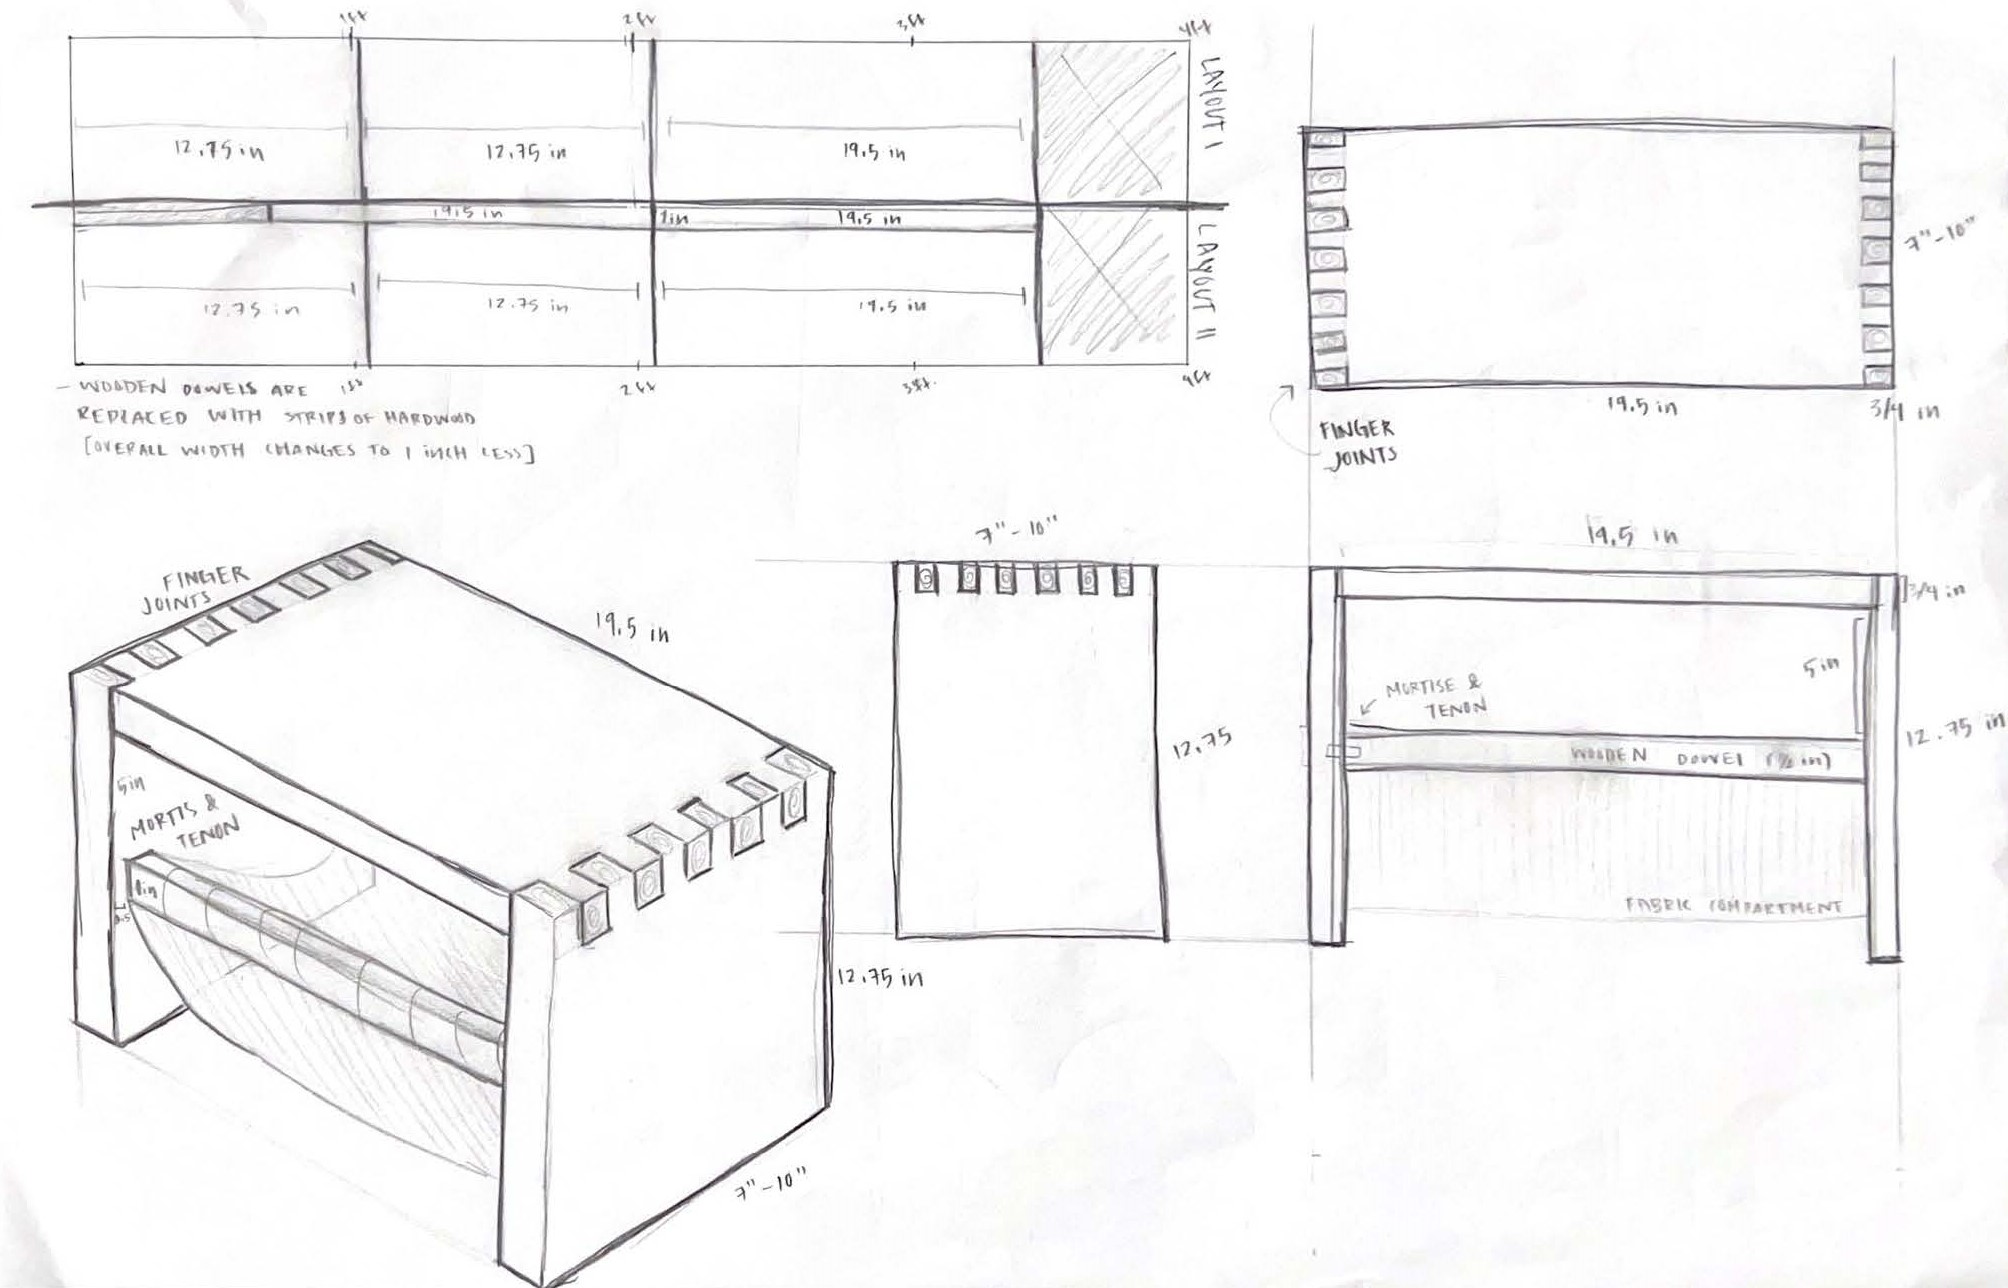 1ft
2ft
3ft
4ft
LAYOUT I
12.75 in
12.75 in
19.5 in
19.5 in
1in
19.5 in
LAYOUT II
12.75 in
12.75 in
19.5 in
1ft
2ft
3ft.
4ft
- WOODEN DOWELS ARE
REPLACED WITH STRIPS OF HARDWOOD
[OVERALL WIDTH CHANGES TO 1 INCH LESS]
7"-10"
19.5 in
3/4 in
FINGER
JOINTS
FINGER
JOINTS
19.5 in
5in
MORTIS &
TENON
1in
12.75 in
7"-10"
7"-10"
12.75
19.5 in
3/4 in
5in
MORTISE &
TENON
12.75 in
WOODEN DOWEL (1/2 in)
FABRIC COMPARTMENT